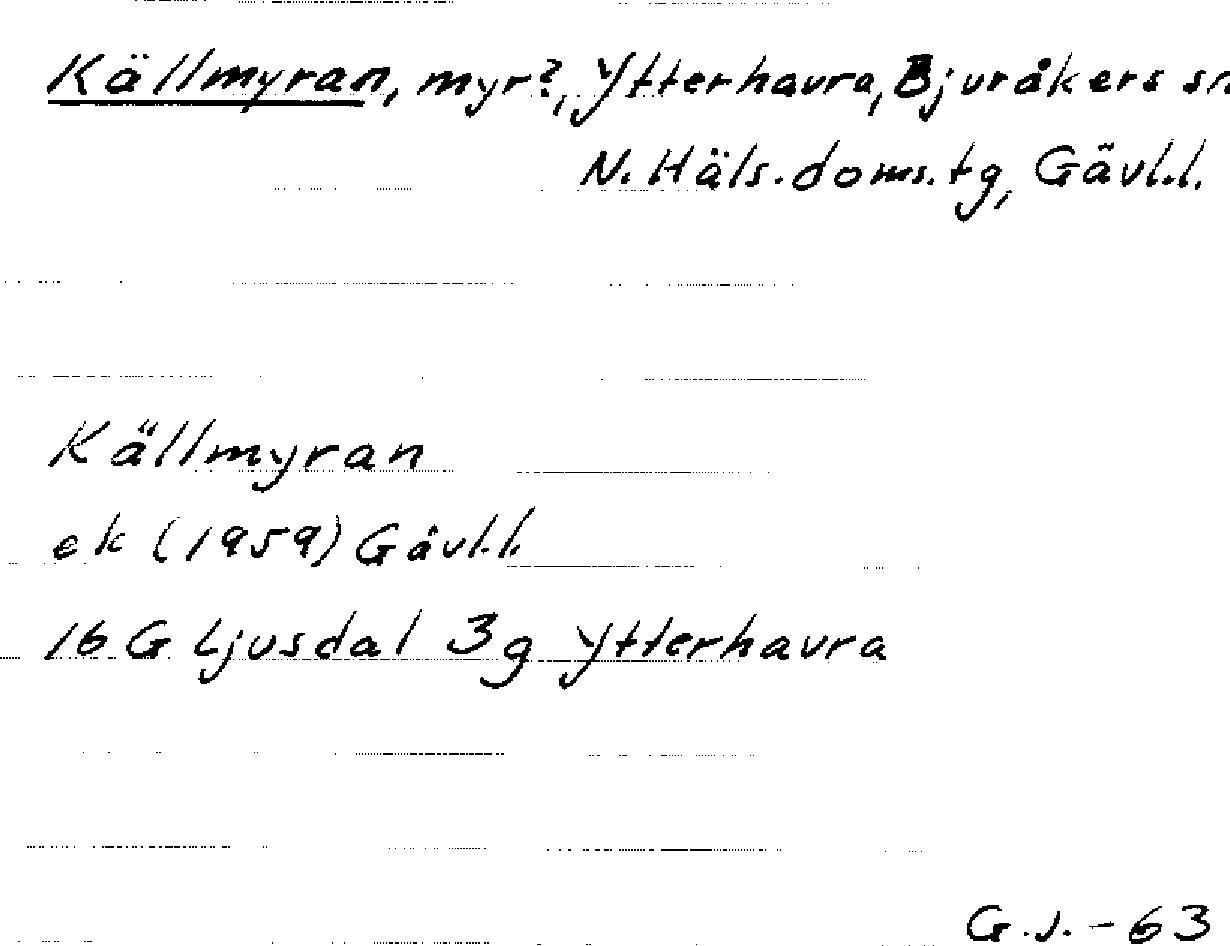 Källmyran, myr?, Ytterhavra, Bjuråkers sn
N. Häls. doms. tg, Gävl.l.
Källmyran
ek (1959) Gävl.l.
16 G Ljusdal 3g Ytterhavra
G.J. - 63